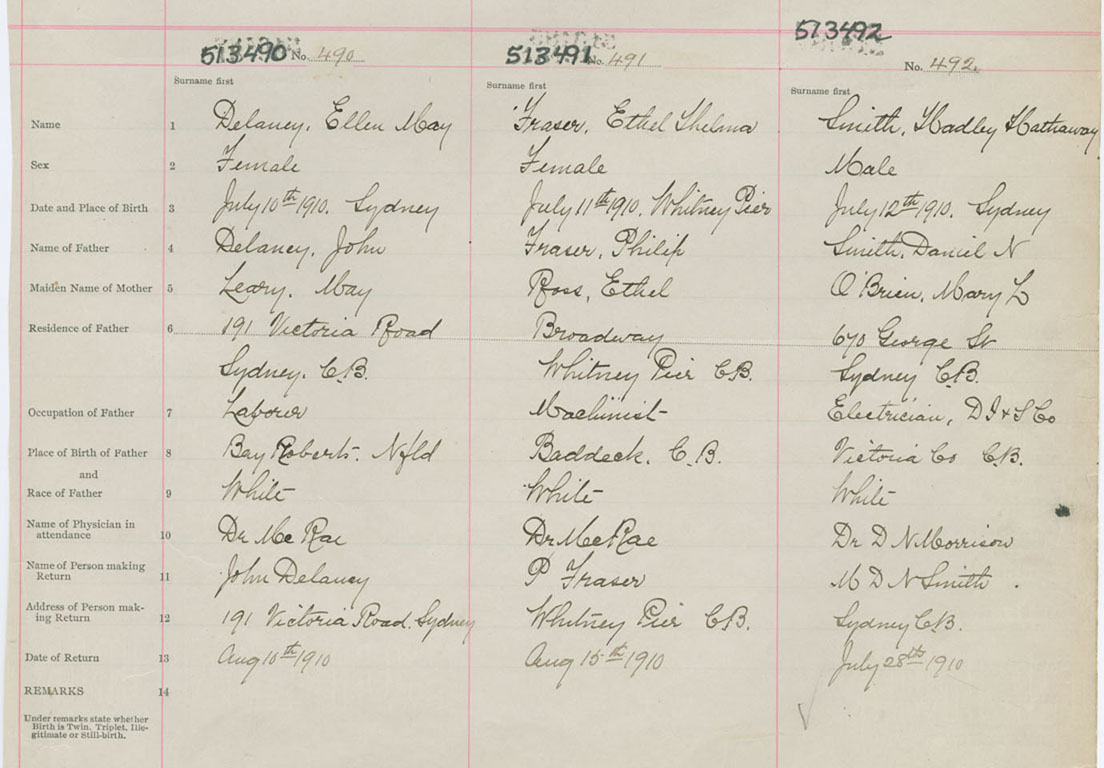 513490 No. 490 513491 No. 491 513492 No. 492.
Surname first Surname first Surname first
Name 1 Delaney, Ellen May Fraser, Ethel Thelma Smith, Hadley Hathaway
Sex 2 Female Female Male
Date and Place of Birth 3 July 10th 1910. Sydney July 11th 1910. Whitney Pier July 12th 1910. Sydney
Name of Father 4 Delaney, John Fraser, Philip Smith, Daniel N
Maiden Name of Mother 5 Leary, May Ross, Ethel O'Brien, Mary L
Residence of Father 6 191 Victoria Road Broadway 670 George St
Sydney, C.B. Whitney Pier C.B. Sydney C.B.
Occupation of Father 7 Laborer Machinist Electrician, D I & S Co
Place of Birth of Father 8 Bay Roberts. Nfld Baddeck, C.B. Victoria Co C.B.
and
Race of Father 9 White White White
Name of Physician in
attendance 10 Dr McRae Dr McRae Dr D N Morrison
Name of Person making
Return 11 John Delaney P Fraser M D N Smith
Address of Person mak-
ing Return 12 191 Victoria Road. Sydney Whitney Pier C.B. Sydney C.B.
Date of Return 13 Aug 10th 1910 Aug 15th 1910 July 28th 1910
REMARKS 14
Under remarks state whether
Birth is Twin, Triplet, Ille-
gitimate or Still-birth.